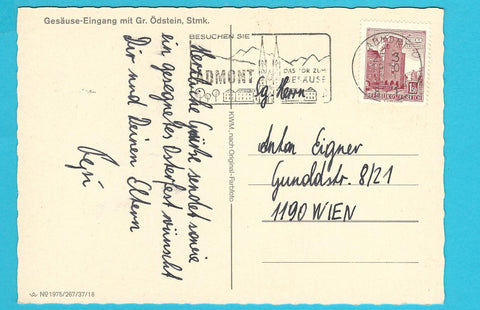 Gesäuse-Eingang mit Gr. Ödstein, Stmk.
BESUCHEN SIE
ADMONT
DAS TOR ZUM
GESÄUSE
ADMONT
REPUBLIK ÖSTERREICH
Herzliche Grüße sendet sowie
ein gesegnetes Osterfest wünscht
Dir und Deinen Eltern
Pepi
KWM, nach Original-Farbfoto
Sg. Herrn
Anton Eigner
Gunoldstr. 8/21
1190 WIEN
No 1975/267/37/18